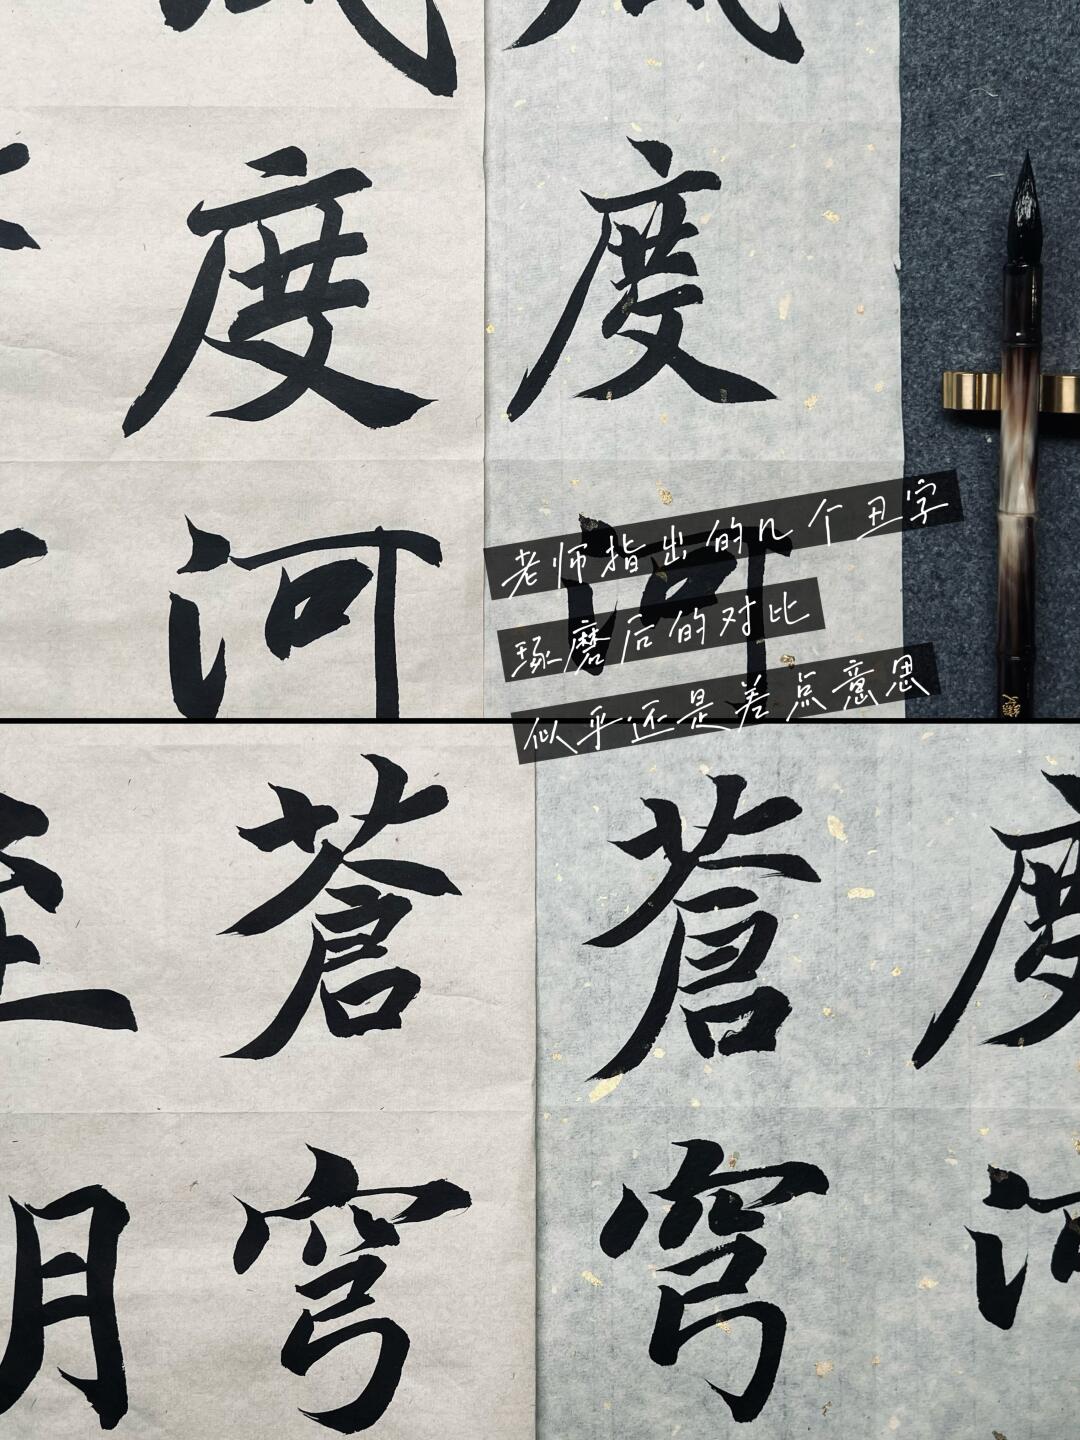 度 度
河 河
老师指出的几个丑字
琢磨后的对比
似乎还是差点意思
蒼 蒼 度
月 穹 穹 河